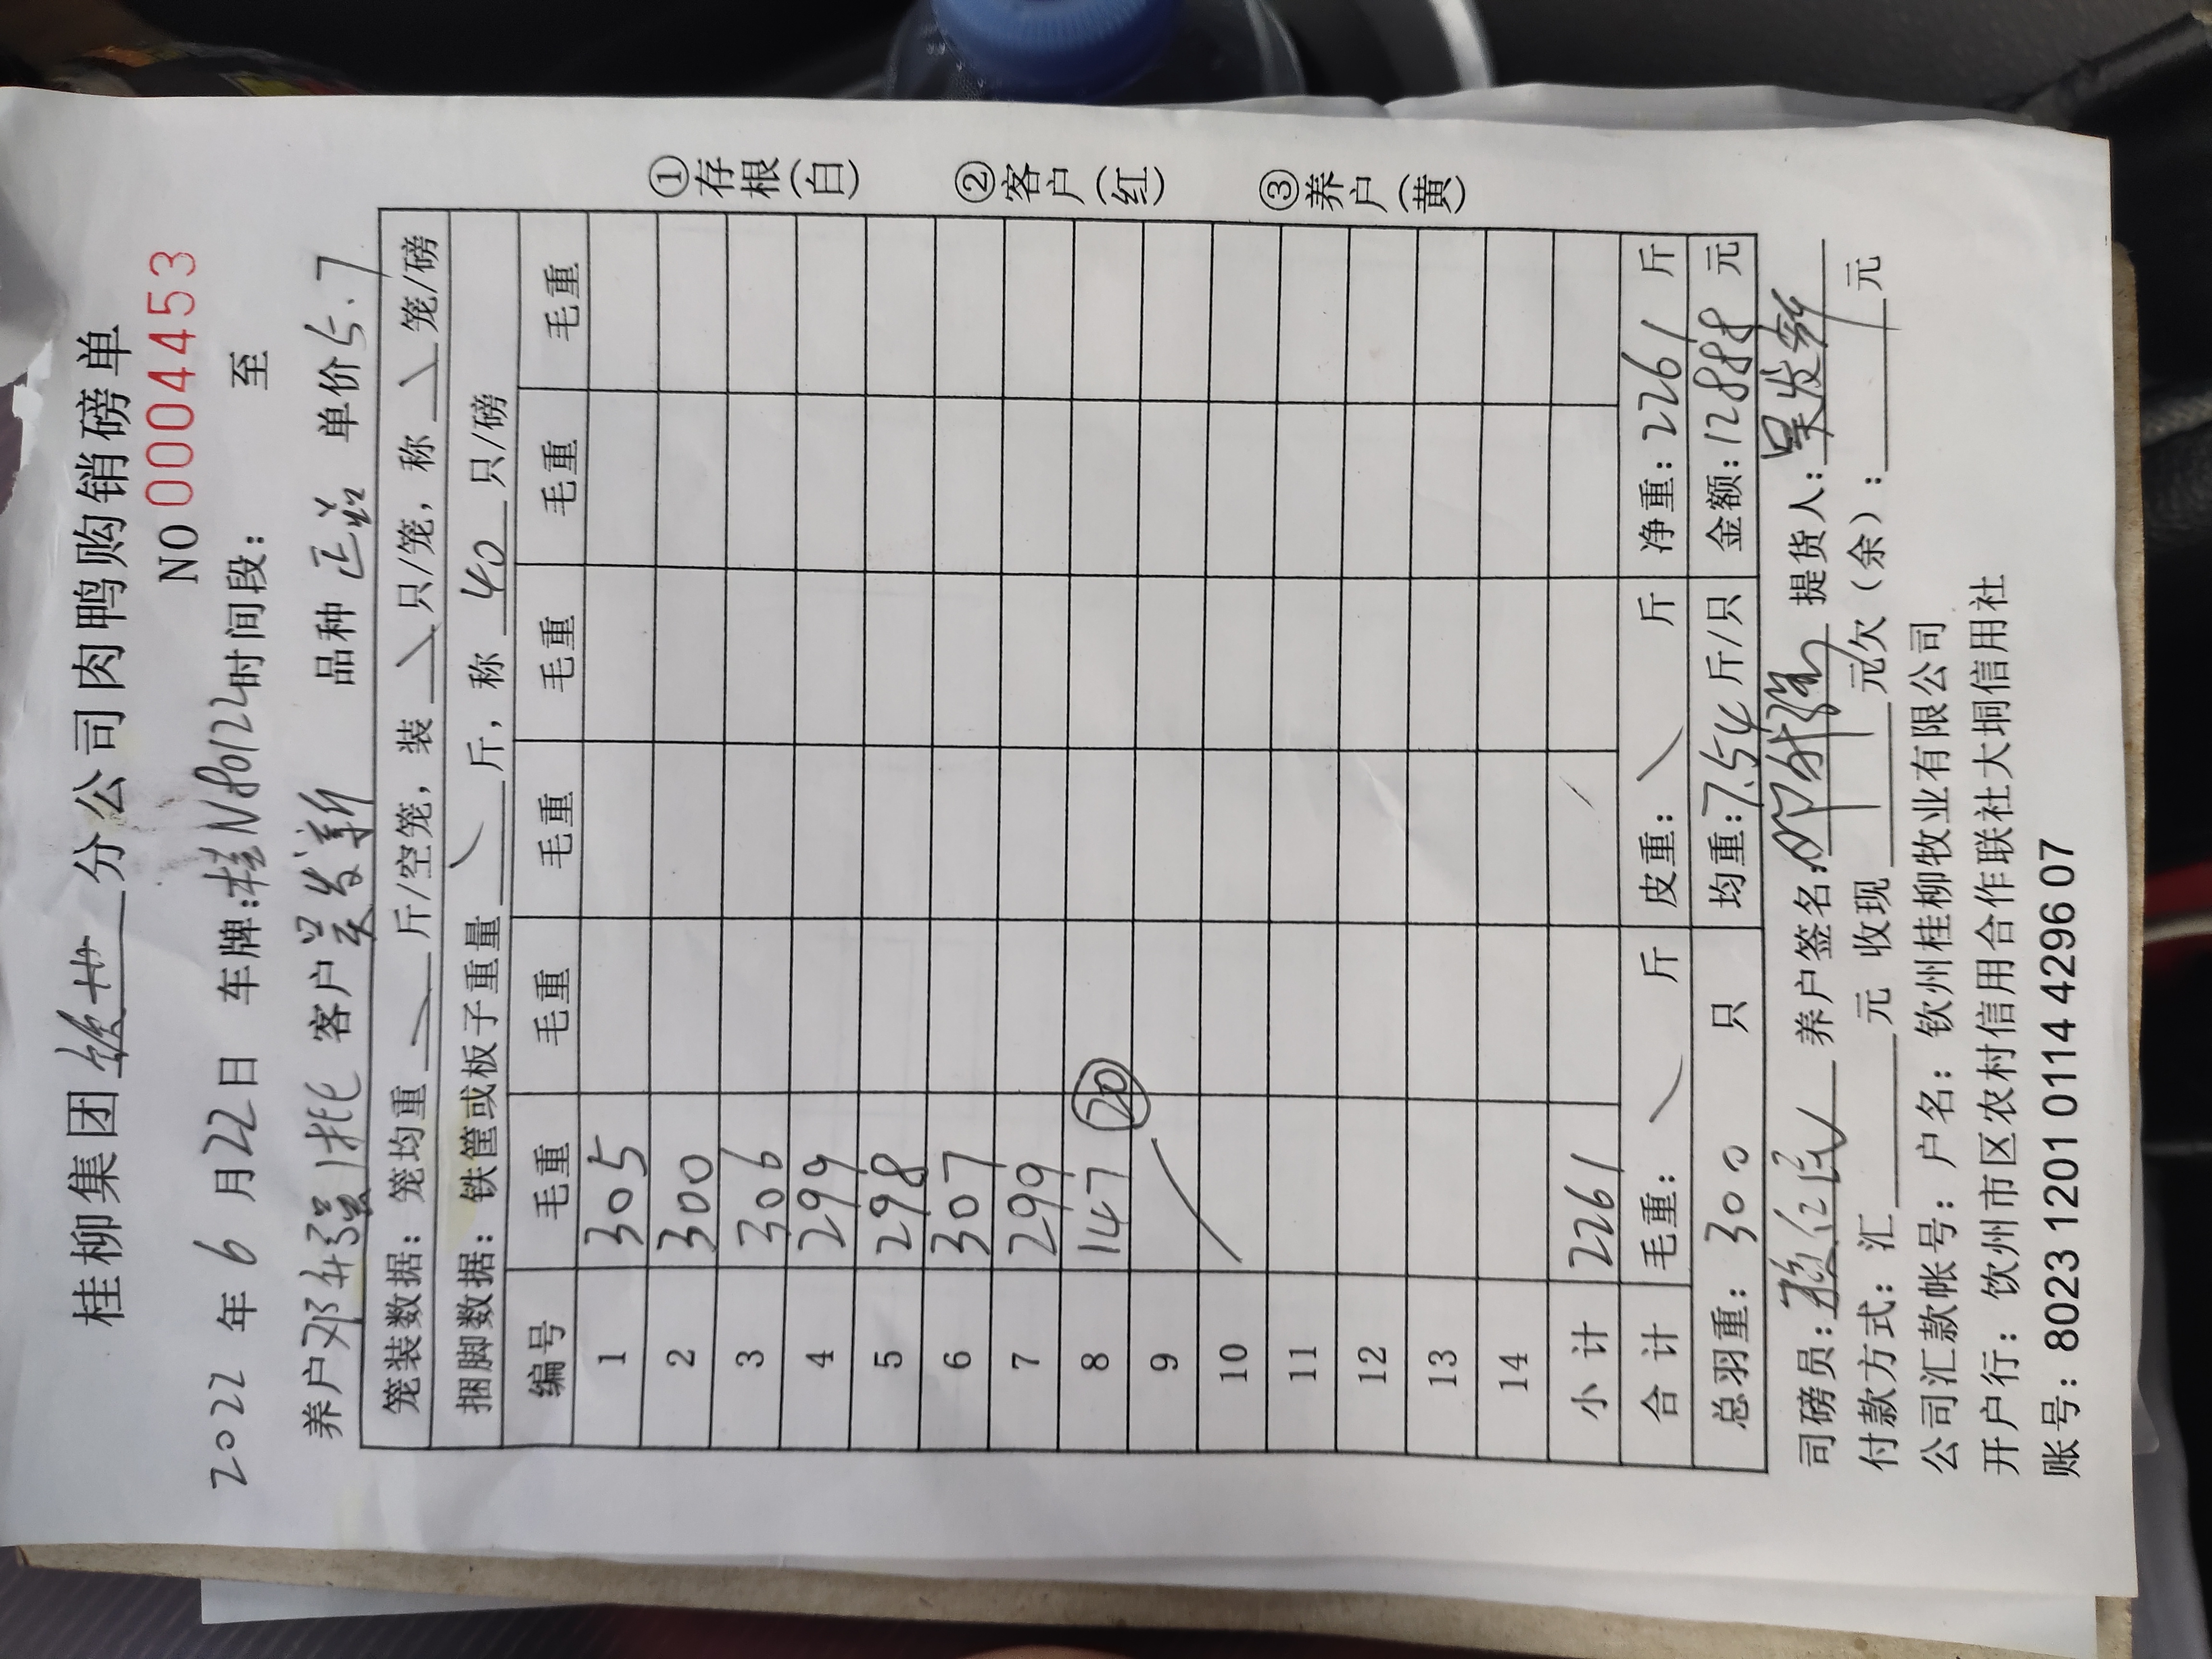 桂柳集团 分公司肉鸭购销磅单
NO 0004453
2022 年 6 月 22 日 车牌:桂N80122 时间段: 至
养户 邓 客户 吴发新 品种 正品 单价 5.7
笼装数据: 笼均重 斤/空笼, 装 只/笼, 称 笼/磅
捆脚数据: 铁筐或板子重量 斤, 称 40 只/磅
编号 毛重 毛重 毛重 毛重 毛重 毛重
1 305
2 300
3 306
4 299
5 298
6 307
7 299
8 147 20
9
10
11
12
13
14
小计 2261
合计 毛重: 斤 皮重: 斤 净重: 2261 斤
总羽重: 300 只 均重: 7.54 斤/只 金额: 12888 元
司磅员: 养户签名: 提货人: 吴发新
付款方式: 汇 元 收现 元欠(余): 元
公司汇款帐号: 户名: 钦州桂柳牧业有限公司
开户行: 钦州市区农村信用合作联社大垌信用社
账号: 8023 1201 0114 4296 07
①存根(白) ②客户(红) ③养户(黄)